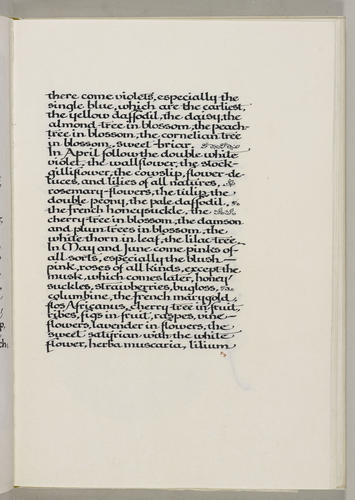 there come violets, especially the
single blue, which are the earliest,
the yellow daffodil, the daisy, the
almond-tree in blossom, the peach-
tree in blossom, the cornelian tree
in blossom, sweet-briar.
In April follow the double white
violet, the wallflower, the stock-
gilliflower, the cowslip, flower-de-
luces, and lilies of all natures,
rosemary-flowers, the tulip, the
double peony, the pale daffodil,
the french honeysuckle, the
cherry-tree in blossom, the damson
and plum-trees in blossom, the
white thorn in leaf, the lilac tree.
In May and June come pinks of
all sorts, especially the blush
pink, roses of all kinds, except the
musk, which comes later, honey
suckles, strawberries, bugloss,
columbine, the french marygold,
flos Africanus, cherry-tree in fruit,
ribes, figs in fruit, raspes, vine-
flowers, lavender in flowers, the
sweet satyrian with the white
flower, herba muscaria, lilium